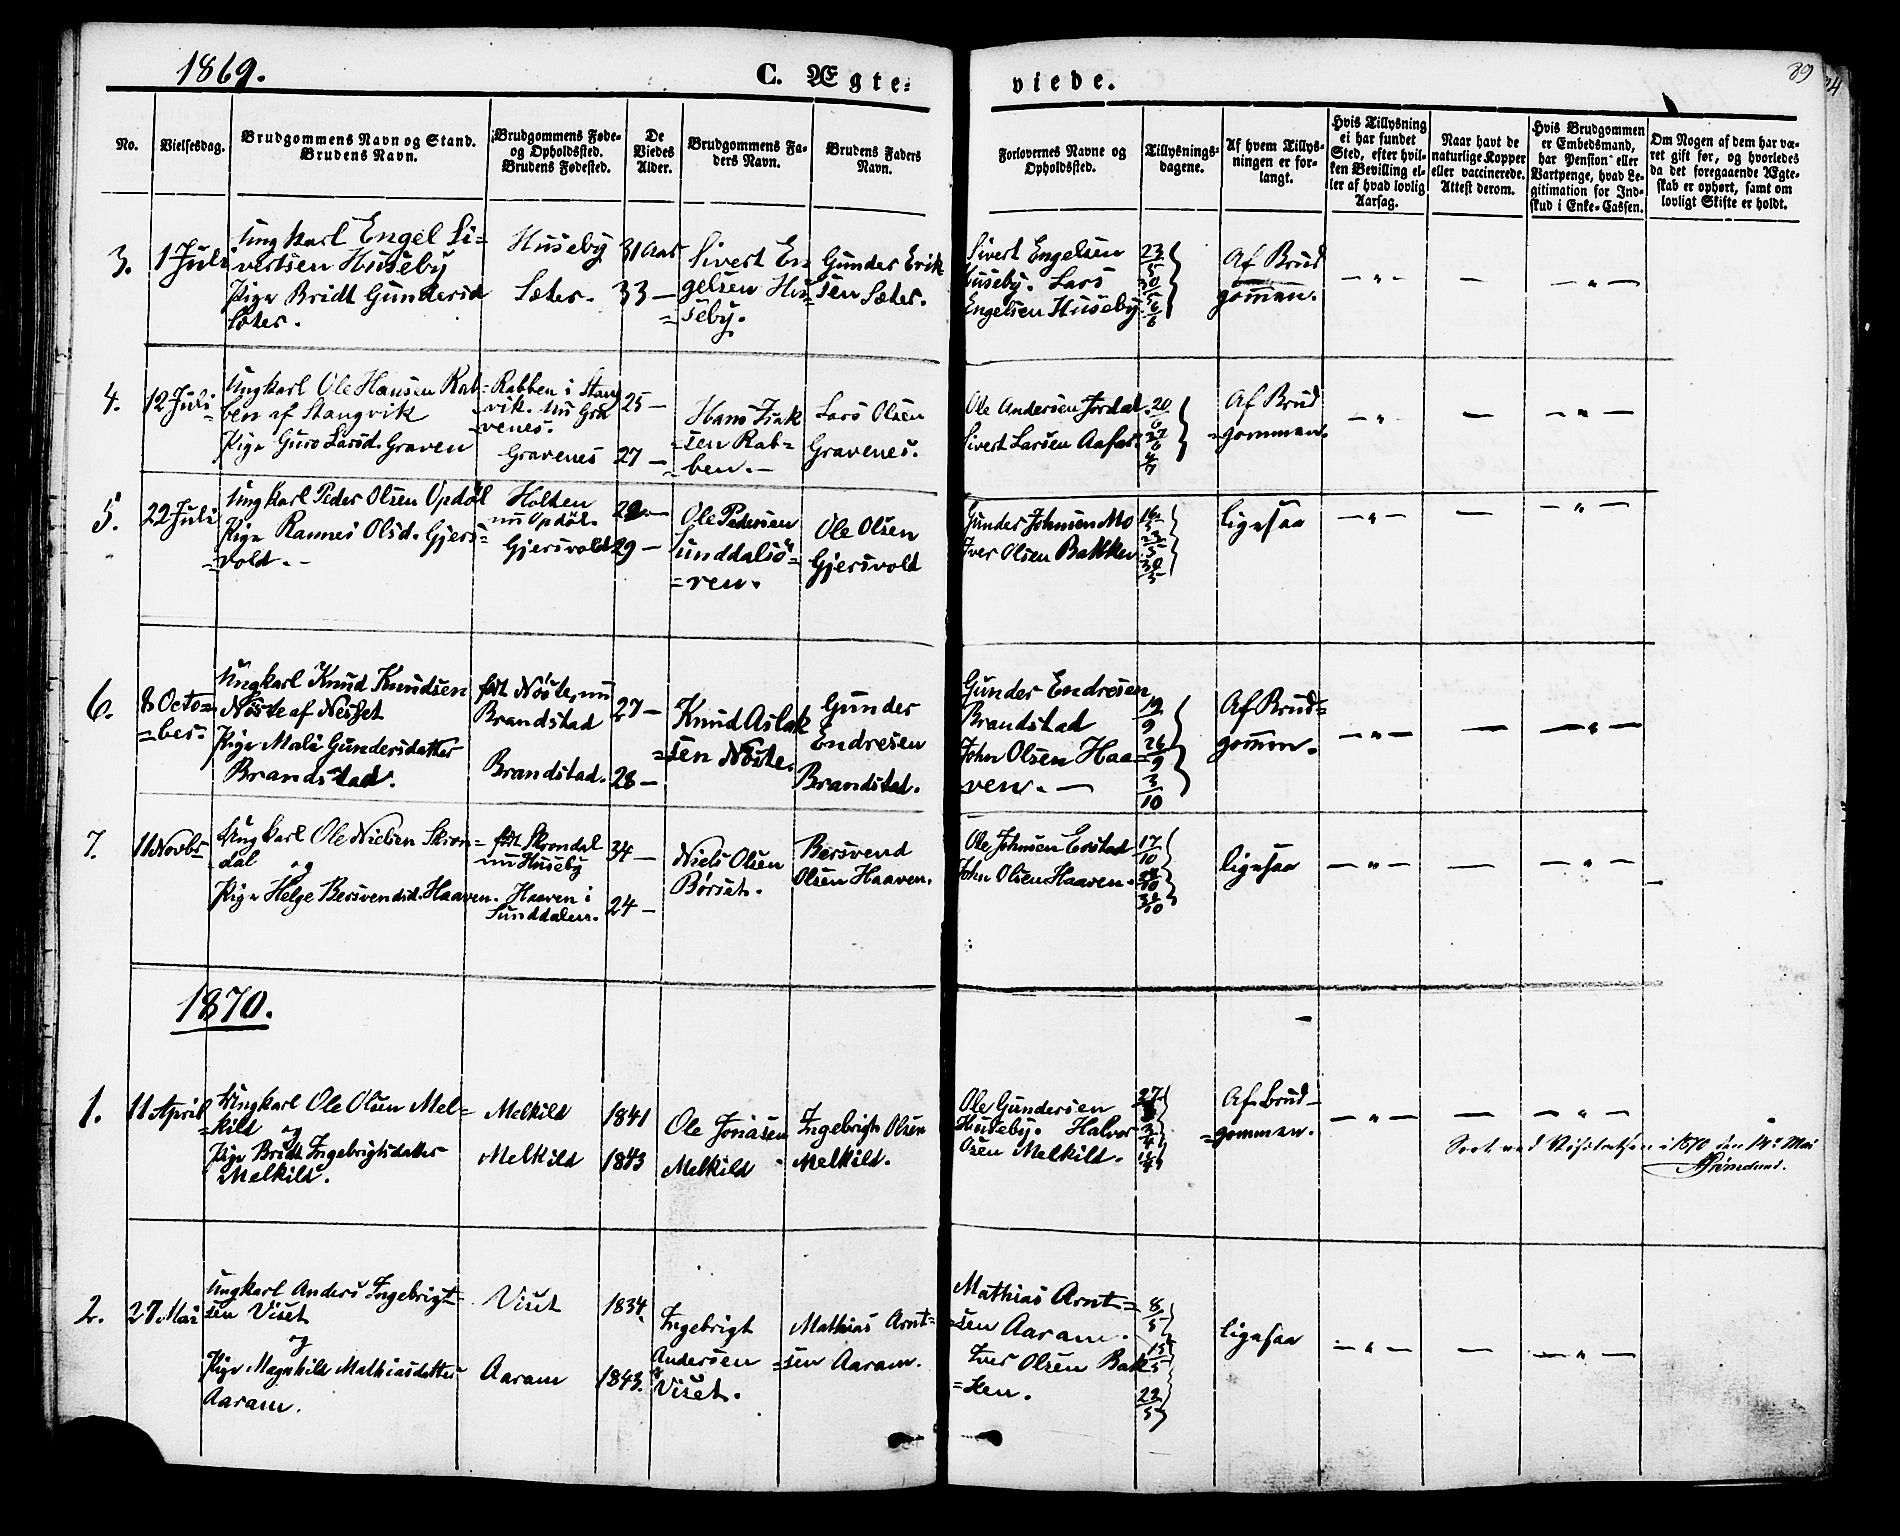 1869.
C. Ægte-
viede.
89
No.
Vielsesdag.
Brudgommens Navn og Stand.
Brudens Navn.
Brudgommens Føde-
og Opholdssted.
Brudens Fødested.
De
Viedes
Alder.
Brudgommens Fa-
ders Navn.
Brudens Faders
Navn.
Forlovernes Navne og
Opholdssted.
Tillysnings-
dagene.
Af hvem Tillys-
ningen er for-
langt.
Hvis Tillysning
ei har fundet
Sted, efter hvil-
ken Bevilling el-
ler af hvad lovlig
Aarsag.
Naar havt de
naturlige Kopper
eller vaccinerede.
Attest derom.
Hvis Brudgommen
er Embedsmand,
har Pension eller
Vartpenge, hvad Le-
gitimation for Ind-
skud i Enke-Cassen.
Om Nogen af dem har væ-
ret gift før, og hvorledes
da det foregaaende Ægte-
skab er ophørt, samt om
lovligt Skifte er holdt.
3.
1 Juli
Ungkarl Engel Si-
vertsen Huseby
Pige Bridt Gundersd
Sæter.
Huseby
Sæter.
31 Aar
33 —
Sivert En
gelsen Hu-
seby.
Gunder Erik
sen Sæter.
Sivert Engelsen
Huseby. Lars
Engelsen Huseby.
23/5 30/5 6/6
Af Brud
gommen.
— " —
—
— " —
4.
12 Juli
Ungkarl Ole Hansen Rab-
ben af Stangvik
Pige Guro Larsd. Graven
Rabben i Stang
vik. nu Gra
venes.
Gravenes
25 —
27 —
Hans Isak
sen Rab-
ben. —
Lars Olsen
Gravenes.
Ole Andersen Jordal.
Sivert Larsen Aafar.
20/6 27/6 4/7
Af Brud
gommen.
— " —
—
— " —
5.
22 Juli
Ungkarl Peder Olsen Opdøl
Pige Rannei Olsd. Gjers-
vold. —
Holten
nu Opdøl.
Gjersvold
29 —
Ole Pedersen
Sunddalsö-
ren.
Ole Olsen
Gjersvold
Gunder Johnsen Mo
Iver Olsen Bakken
16/5 23/5 30/5
ligesaa
— " —
—
— " —
6.
8 Octo-
ber.
Ungkarl Knud Knudsen
Nöste af Nesset
Pige Mali Gundersdatter
Brandstad.
født Nöste, nu
Brandstad
Brandstad.
27 —
28 —
Knud Aslak
sen Nöste.
Gunder
Endresen
Brandstad.
Gunder Endresen
Brandstad
John Olsen Haa-
ven. —
19/9 26/9 3/10
Af Brud-
gommen.
— " —
—
— " —
7.
11 Novbr
Ungkarl Ole Nielsen Skron-
dal
og
Pige Helge Bersvendsd. Haaven.
født Skrondal
nu Huseby
Haaven i
Sunddalen.
34 —
24 —
Niels Olsen
Børset.
Bersvend
Olsen Haaven.
Ole Johnsen Erstad
John Olsen Haaven.
17/10 24/10
ligesaa
— " —
—
— " —
1870.
1.
11 April
Ungkarl Ole Olsen Mel-
kild
og
Pige Bridt Ingebrigtsdatter
Melkild.
Melkild
Melkild
1841
1843
Ole Jonasen
Melkild
Ingebrigt Olsen
Melkild.
Ole Gundersen
Huseby. Halvor
Olsen Melkild.
27/3 3/4
Af Brud-
gommen.
— " —
—
— " —
i 1870 den 14de Mai
2.
27 Mai
Ungkarl Anders Ingebrigt-
sen Viset
og
Pige Magnhild Mathiasdatter
Aaram.
Viset
Aaram
1834.
1843.
Ingebrigt
Andersen
Viset.
Mathias Arnt-
sen Aaram.
Mathias Arnt-
sen Aaram.
Iver Olsen Bak
ken.
8/5 15/5 22/5
ligesaa
— " —
—
— " —